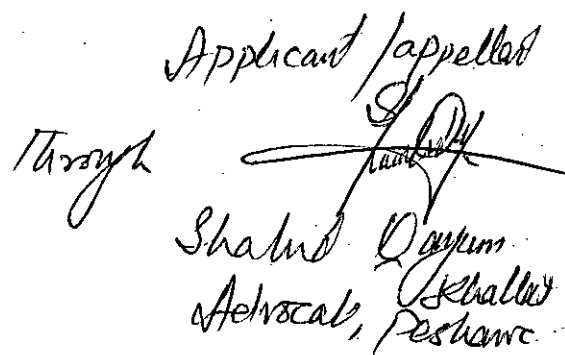 Applicant/appellant
Through
Shahid Qayum
Khattak
Advocate, Peshawar